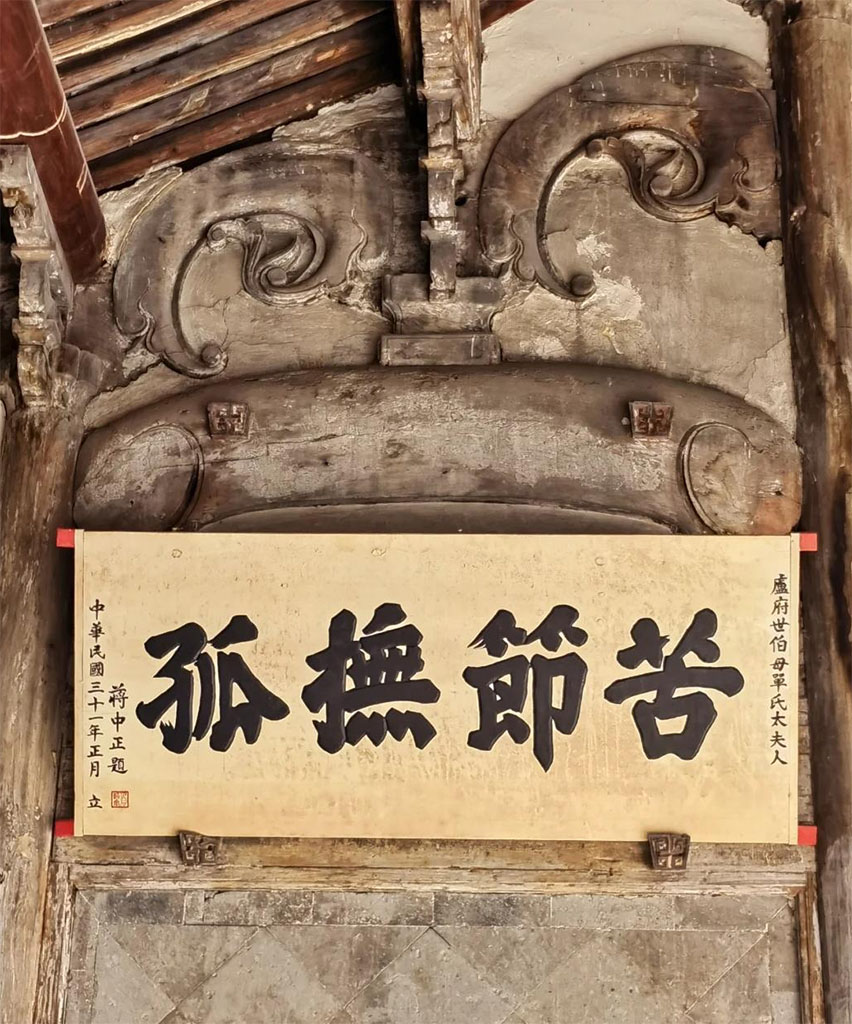 盧府世伯母單氏太夫人
苦節撫孤
蔣中正題
中華民國三十一年正月 立